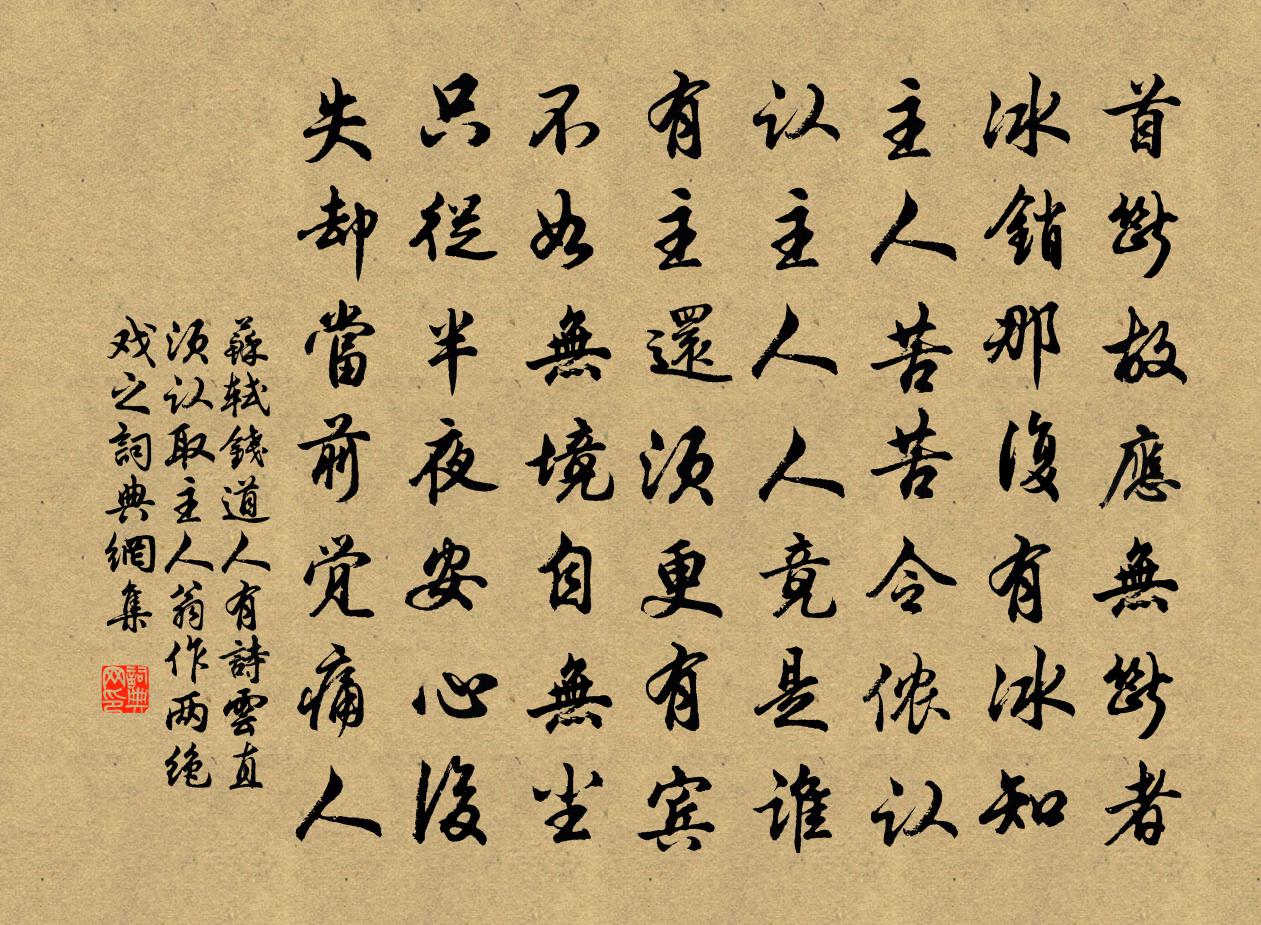 首斷故應無斷者
冰銷那復有冰知
主人苦苦令侬认
认主人人竟是谁
有主還须更有宾
不如無境自無尘
只從半夜安心後
失却當前觉痛人
蘇軾錢道人有詩雲直
须认取主人翁作两绝
戏之詞典網集
詞典网印